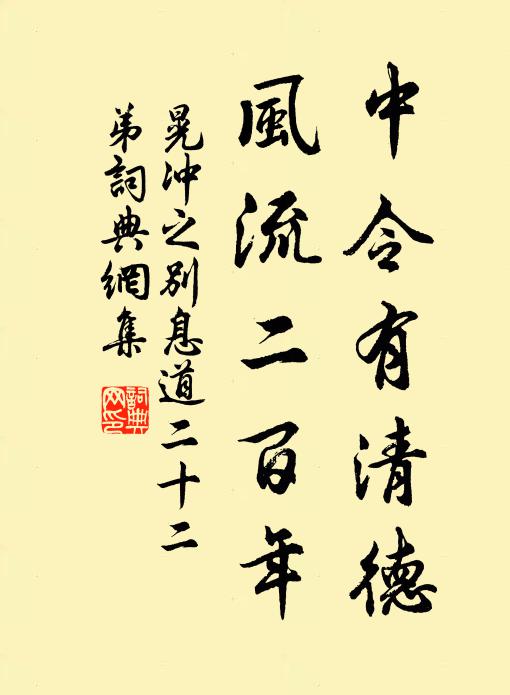 中令有清德
風流二百年
晁沖之別息道二十二
弟詞典網集
詞典
网印